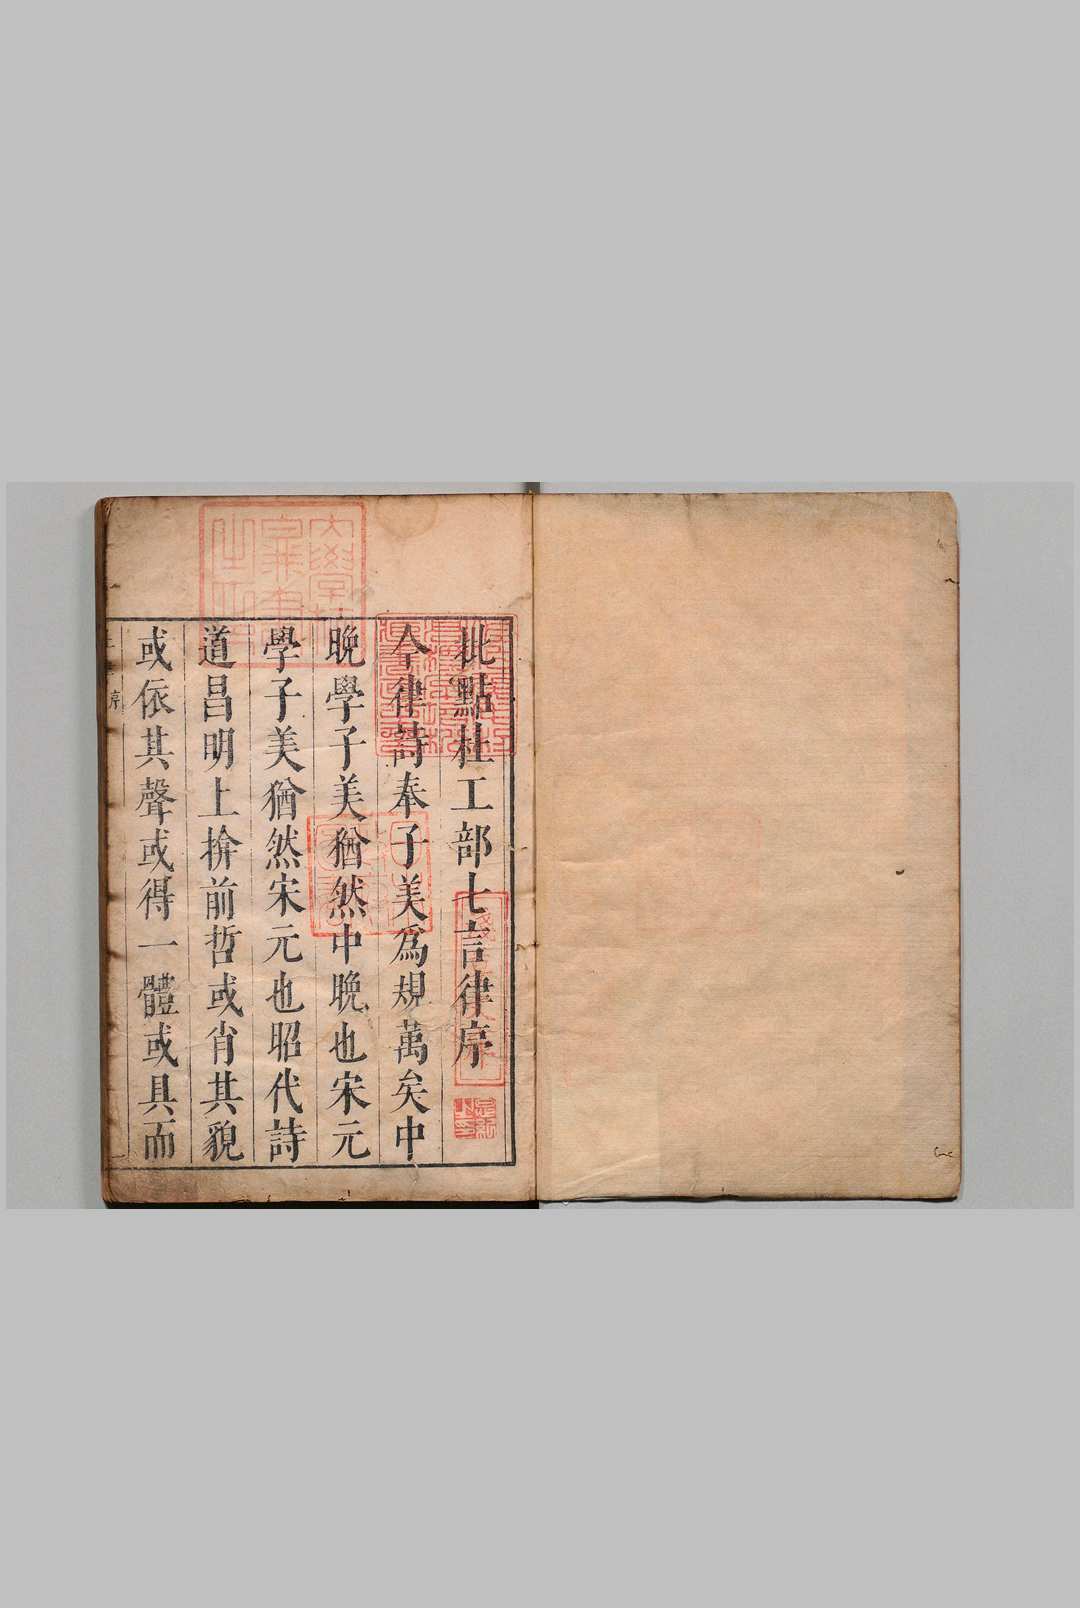 批點杜工部七言律序
今律詩奉子美爲規萬矣中
晚學子美猶然中晚也宋元
學子美猶然宋元也昭代詩
道昌明上揜前哲或肖其貌
或依其聲或得一體或具而
序